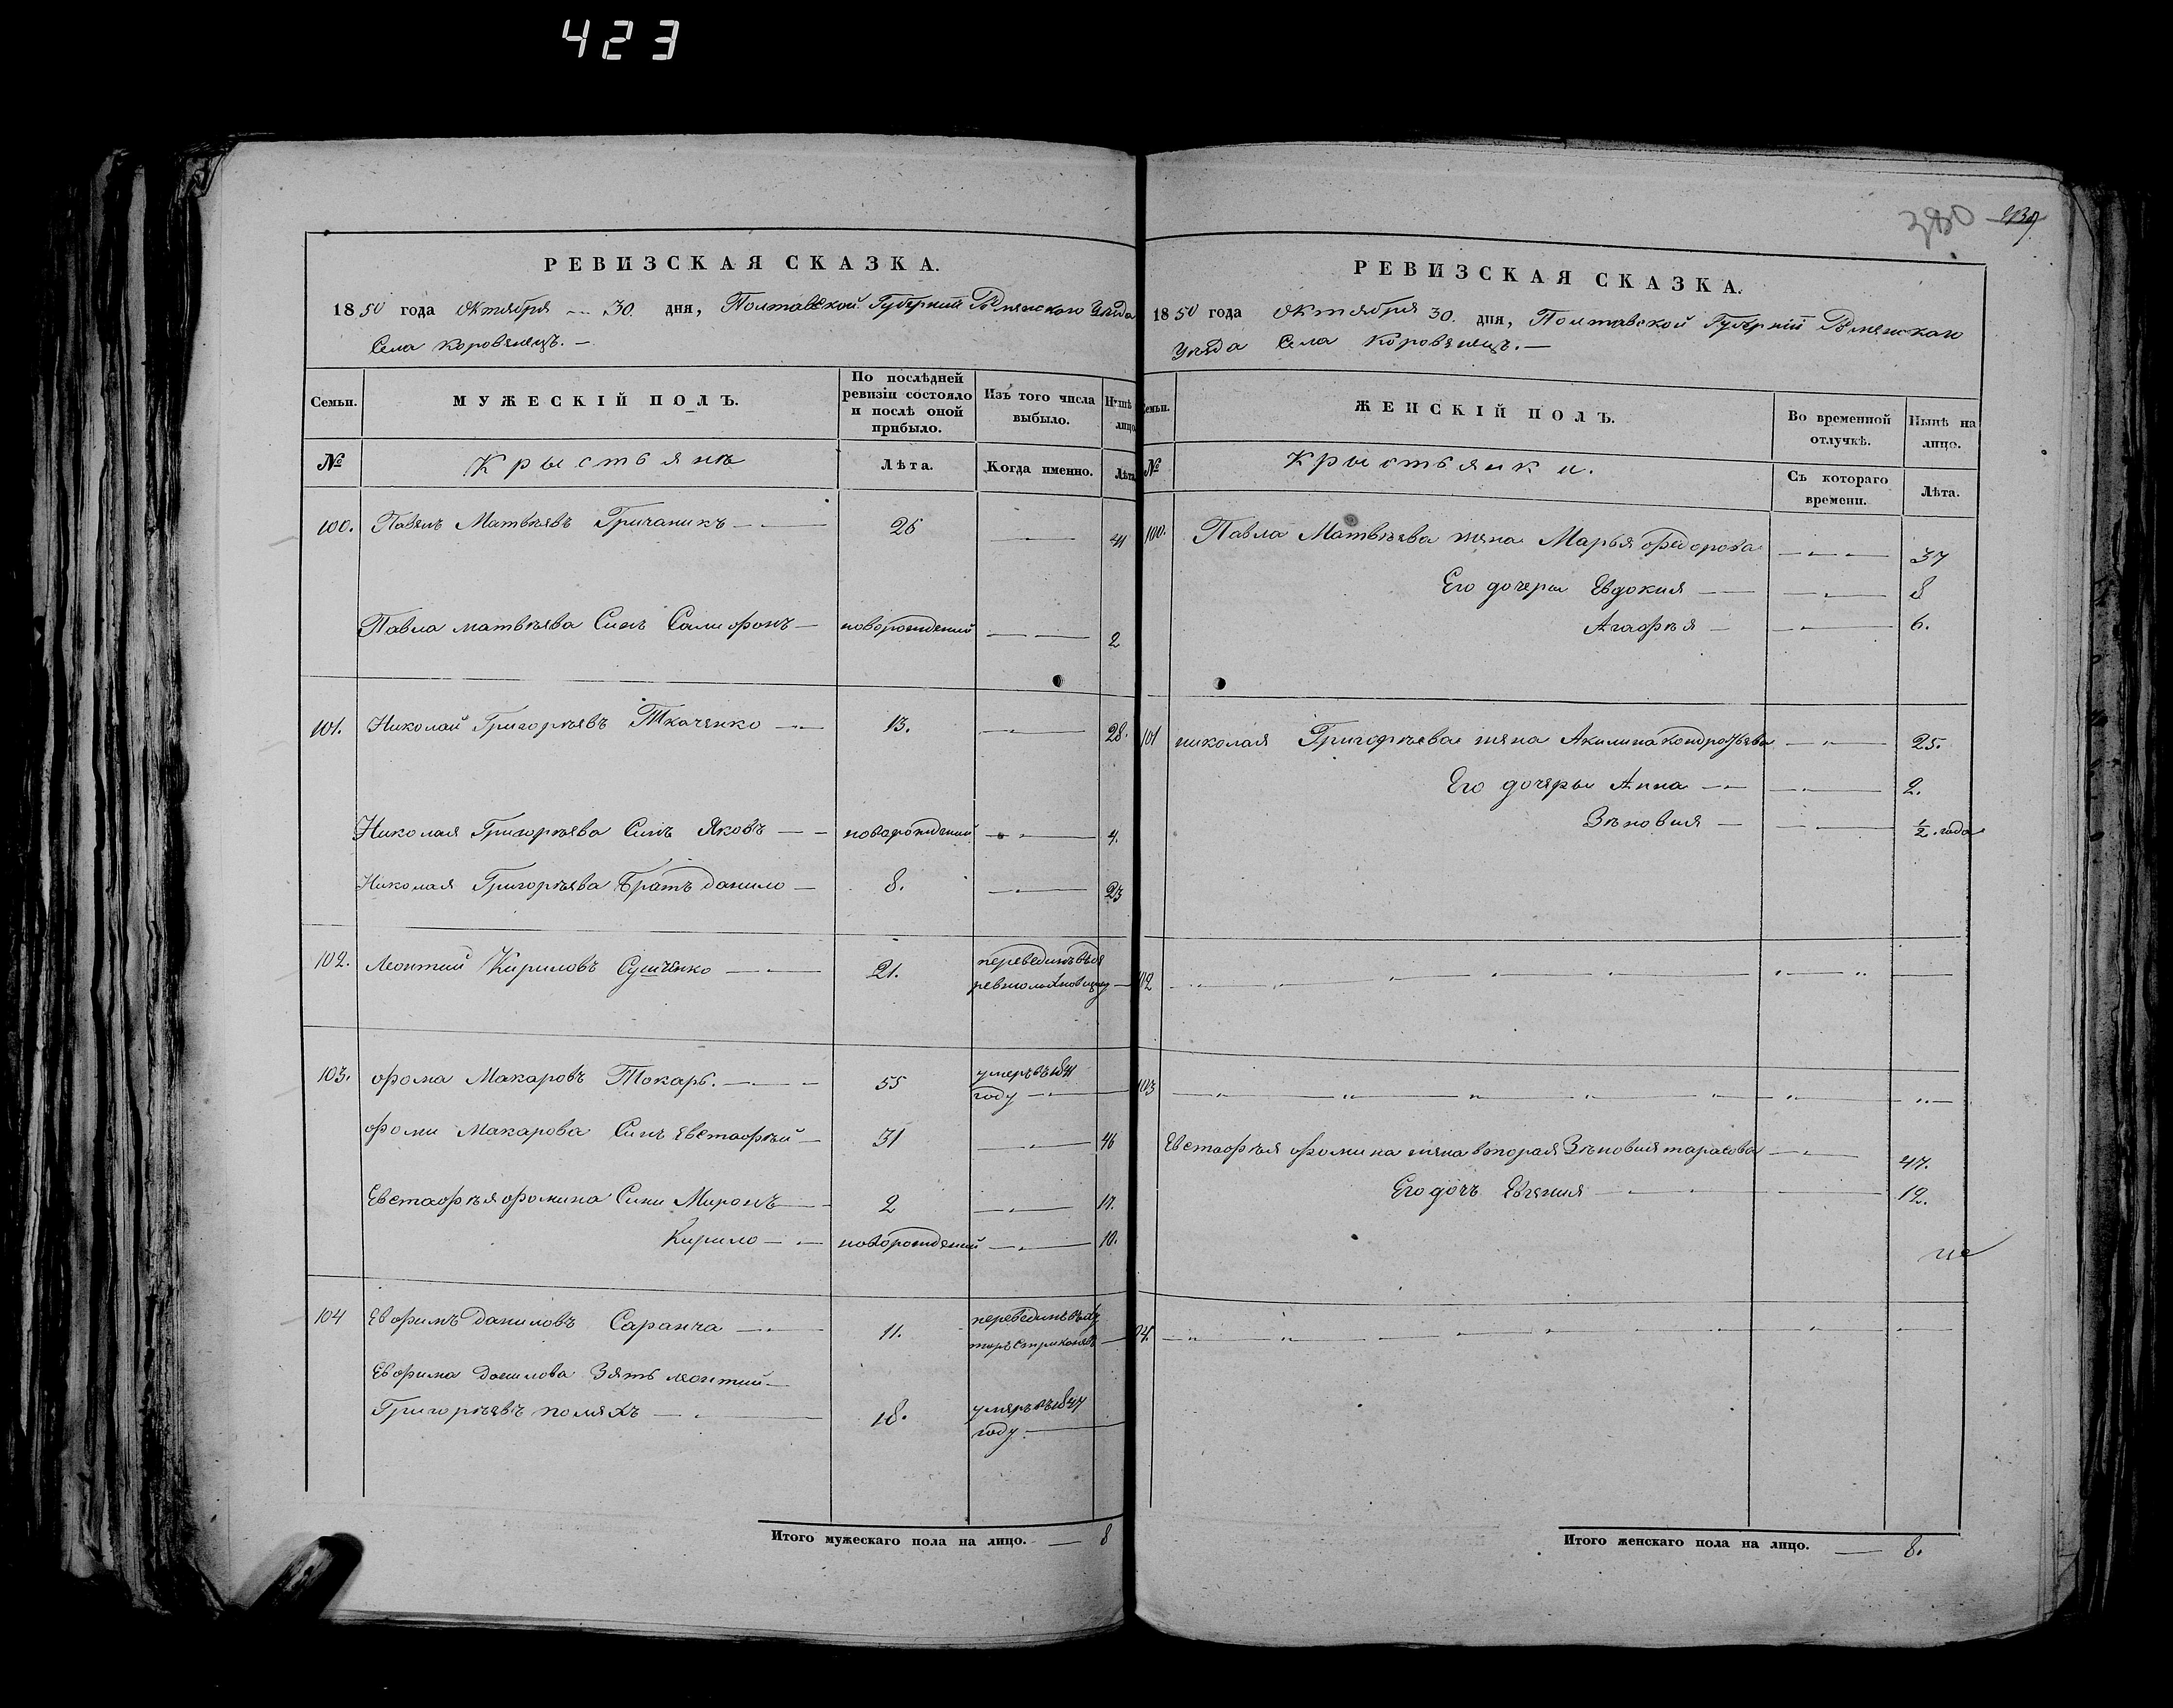 423
380
РЕВИЗСКАЯ СКАЗКА.
1850 года Октября 30. дня, Полтавской Губернии Роменскаго Уѣзда
Села Коровинецъ. —
Семьи.
МУЖЕСКІЙ ПОЛЪ.
По послѣдней ревизіи состояло и послѣ оной прибыло.
Изъ того числа выбыло.
№
Крыстьянъ
Лѣта.
Когда именно.
Лѣта
100. Павелъ Матвѣявъ Гричаникъ — 26 — 41
Павла матвѣява Синъ Самифонъ — новорожденний — 2
101. Николай Григорѣявъ Ткаченко — 13. — 28.
Николая Григорѣява Синъ Яковъ — новорожденний — 4.
Николая Григорѣява Братъ данило — 8. — 23
102. Леонтий Кириловъ Сушченко — 21. перевединъ
103. фома Макаровъ Токарь. — 55 умеръ въ 1841
году —
фоми Макарова Синъ Евстафѣй — 31 — 46
Евстафѣя фомина Сини Миронъ — 2 — 17.
Кирило — новорожденний — 10.
104 Евфимъ даниловъ Саранча — 11. перевединъ
Евфима данилова Зять леонтий —
Григорѣявъ полякъ — 18. умяръ въ 1847
году. —
Итого мужескаго пола на лицо. — 8
РЕВИЗСКАЯ СКАЗКА.
1850 года Октября 30. дня, Полтавской Губернiй Роменскаго
Уѣзда Села Коровинецъ. —
Семьи.
ЖЕНСКІЙ ПОЛЪ.
Во временной отлучкѣ.
Нынѣ на лицо.
№
Крыстьянки.
Съ котораго времени.
Лѣта.
100. Павла Матвѣява жяна Марья федорова — 37
Его дочери Евдокия — 8
Агафѣя — 6.
101 николая Григорѣева жяна Акилина Кондратьява — 25.
Его дочяры Анна — 2.
Зѣновия — ½ года
102 — „ —
103 — „ —
Евстафѣя фомина жяна вторая Зѣновия тарасова — 47.
Его дочъ Евгения — 12.
104. — „ —
Итого женскаго пола на лицо. — 8.